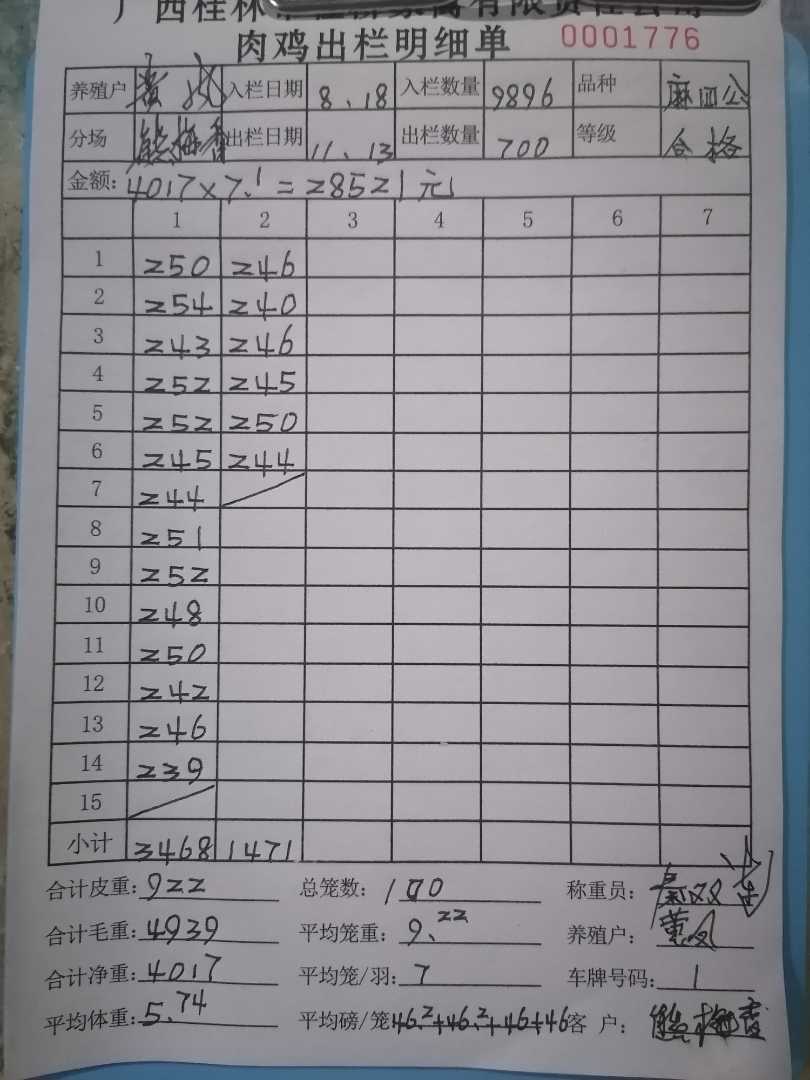 肉鸡出栏明细单 0001776
养殖户 入栏日期 8.18 入栏数量 9896 品种 麻四公
分场 熊梅香 出栏日期 11.13 出栏数量 700 等级 合格
金额: 4017×7.1=28521元
1 2 3 4 5 6 7
1 250 246
2 254 240
3 243 246
4 252 245
5 252 250
6 245 244
7 244
8 251
9 252
10 248
11 250
12 242
13 246
14 239
15
小计 3468 1471
合计皮重: 922 总笼数: 100 称重员:
合计毛重: 4939 平均笼重: 9.22 养殖户:
合计净重: 4017 平均笼/羽: 7 车牌号码: 1
平均体重: 5.74 平均磅/笼 46.2+46.2+46+46 客 户: 熊梅香